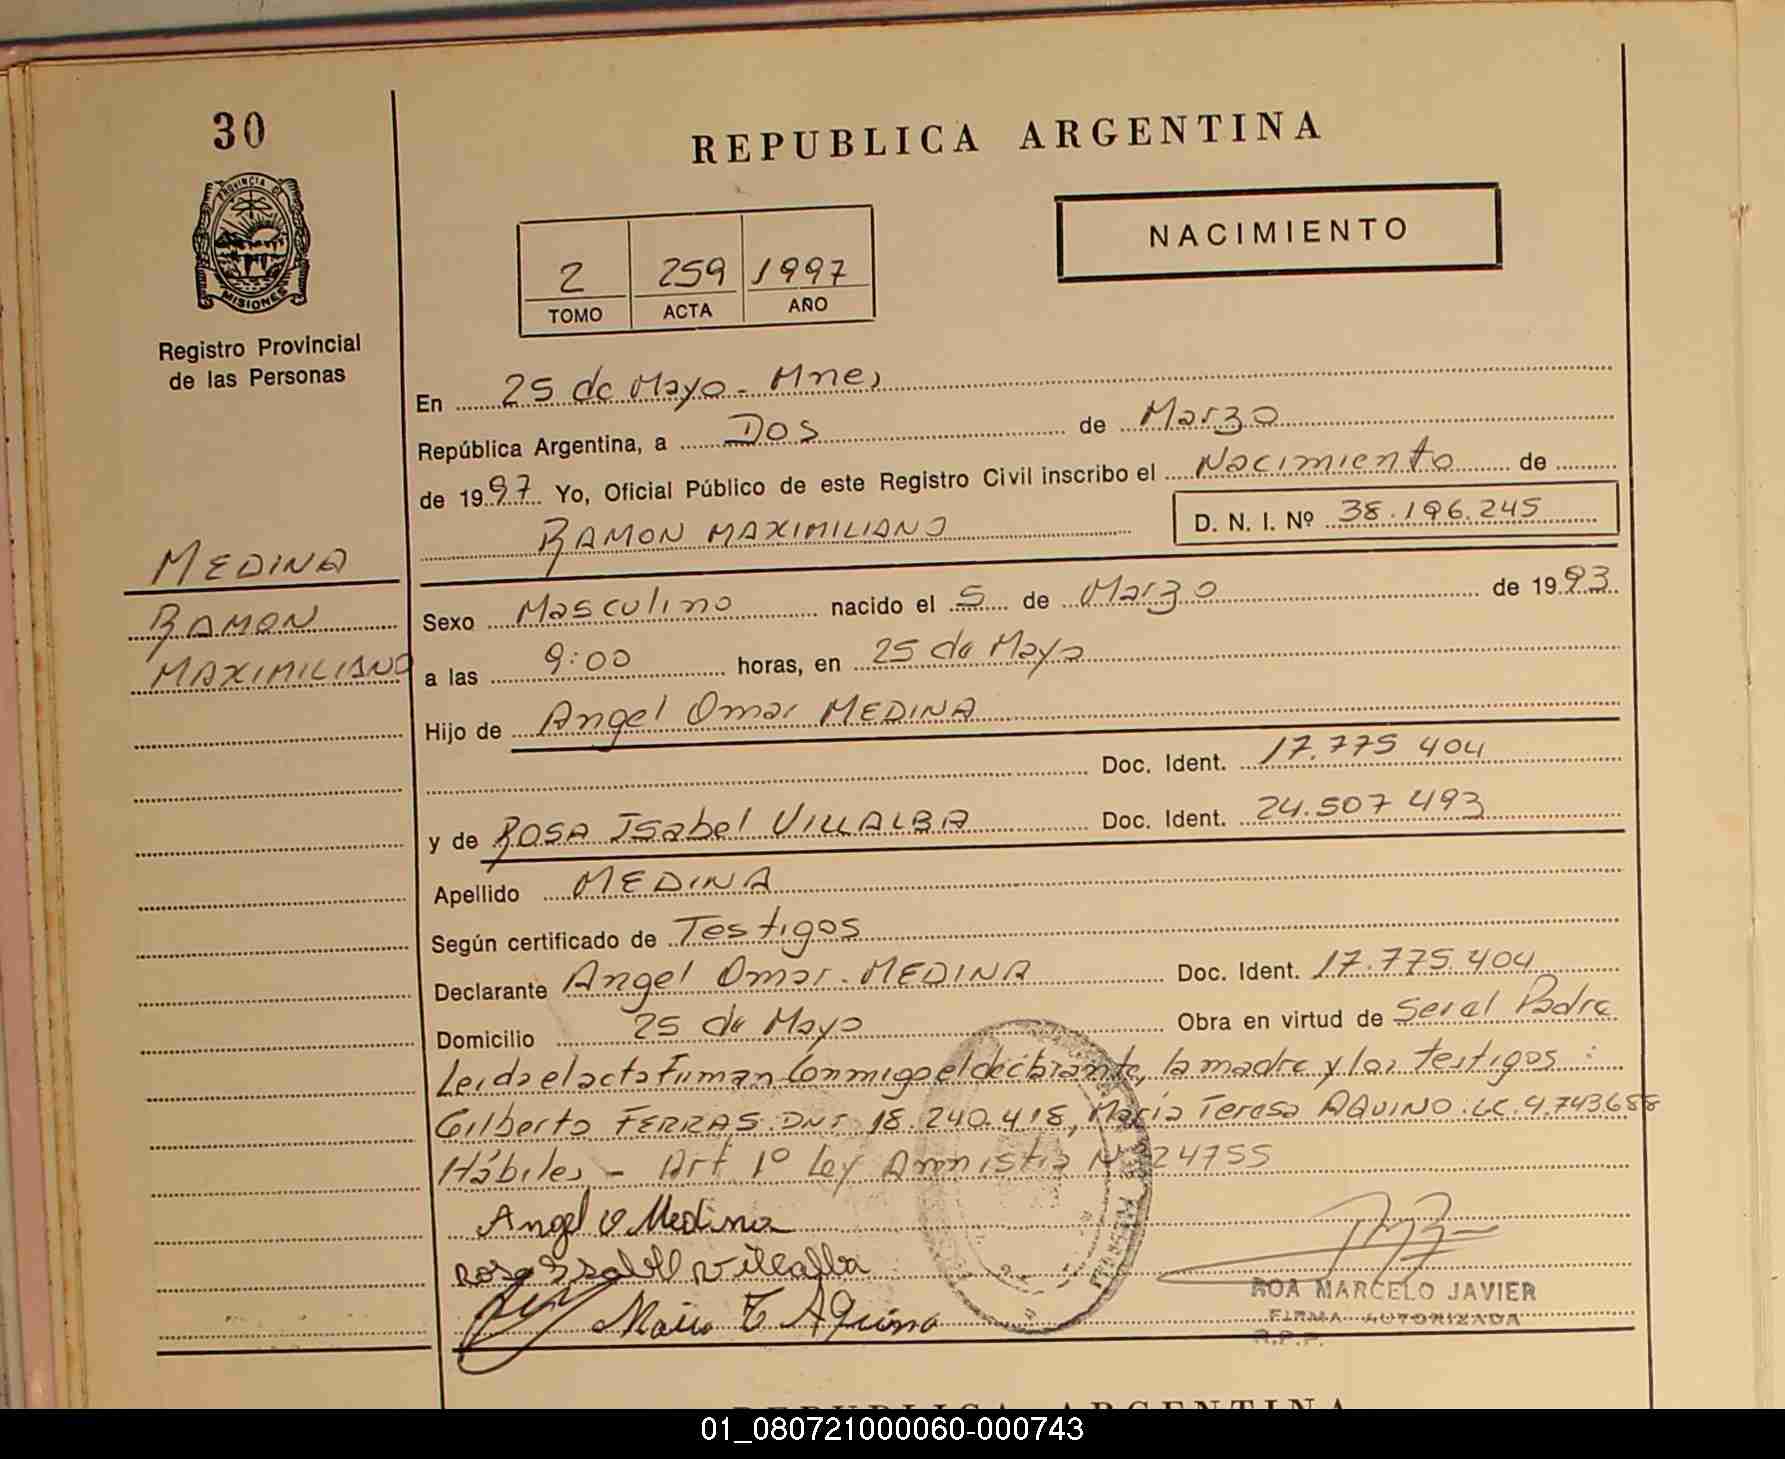 30
REPUBLICA ARGENTINA
PROVINCIA DE
MISIONES
NACIMIENTO
2 259 1997
TOMO ACTA AÑO
Registro Provincial
de las Personas
En 25 de Mayo - Mnes
República Argentina, a Dos de Marzo
de 1997 Yo, Oficial Público de este Registro Civil inscribo el Nacimiento de
RAMON MAXIMILIANO D. N. I. Nº 38.196.245
MEDINA
RAMON
MAXIMILIANO
Sexo Masculino nacido el 5 de Marzo de 1993
a las 9:00 horas, en 25 de Mayo
Hijo de Angel Omar MEDINA
Doc. Ident. 17.775 404
y de ROSA Isabel VILLALBA Doc. Ident. 24.507 493
Apellido MEDINA
Según certificado de Testigos
Declarante Angel Omar. MEDINA Doc. Ident. 17.775.404
Domicilio 25 de Mayo Obra en virtud de Ser el Padre
Leida el acta firman conmigo el declarante, la madre y los testigos:
Gilberto FERRAS. DNI 18.240.418, María Teresa AQUINO. LC. 4.743688
Hábiles - Art 1º Ley Amnistia Nº 24755
Angel O Medina
Rosa Isabel Villalba
Maria T Aquino
ROA MARCELO JAVIER
FIRMA AUTORIZADA
R.P.P.
REPUBLICA ARGENTINA
01_080721000060-000743